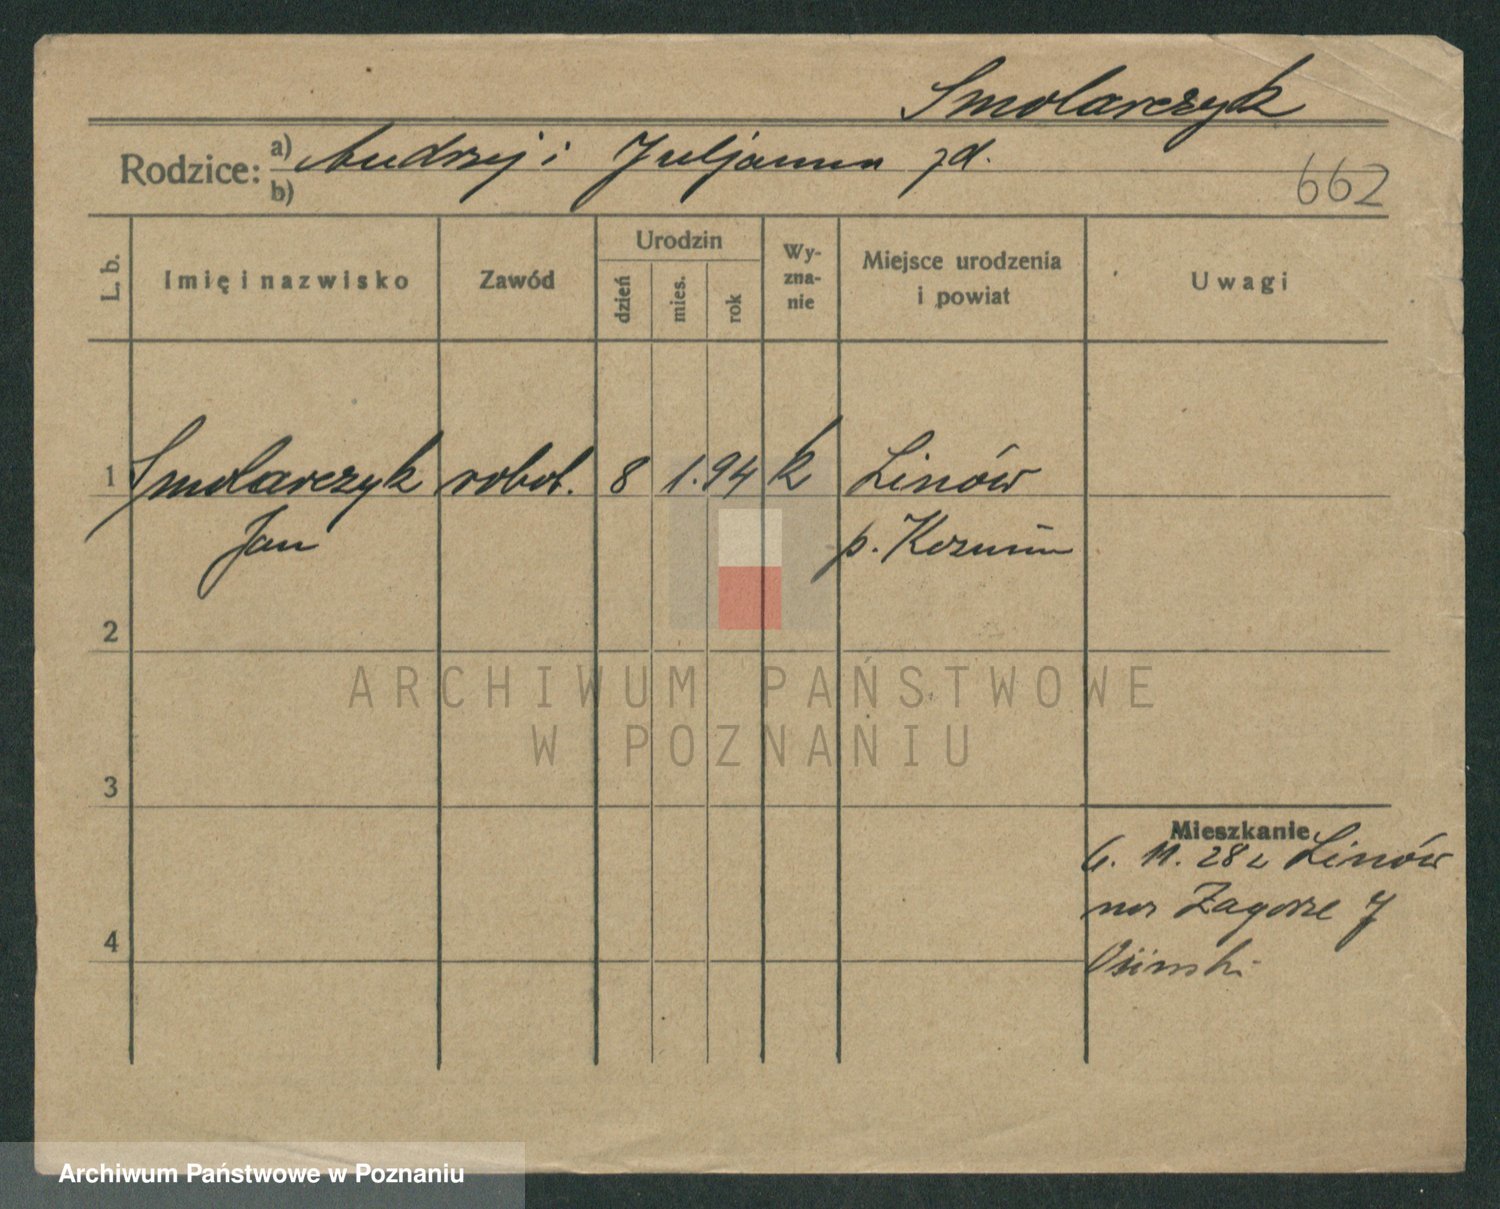 Smolarczyk
Rodzice: a) Andrzej i Juljanna zd.
b)
662
L. b.
Imię i nazwisko
Zawód
Urodzin
dzień
mies.
rok
Wy-
zna-
nie
Miejsce urodzenia
i powiat
Uwagi
1 Smolarczyk robot. 8 1. 94 k Linów
Jan p.
2
ARCHIWUM PAŃSTWOWE
W POZNANIU
3
Mieszkanie
6. 11. 28 z Linów
na Zagorze J
Osinski
4
Archiwum Państwowe w Poznaniu